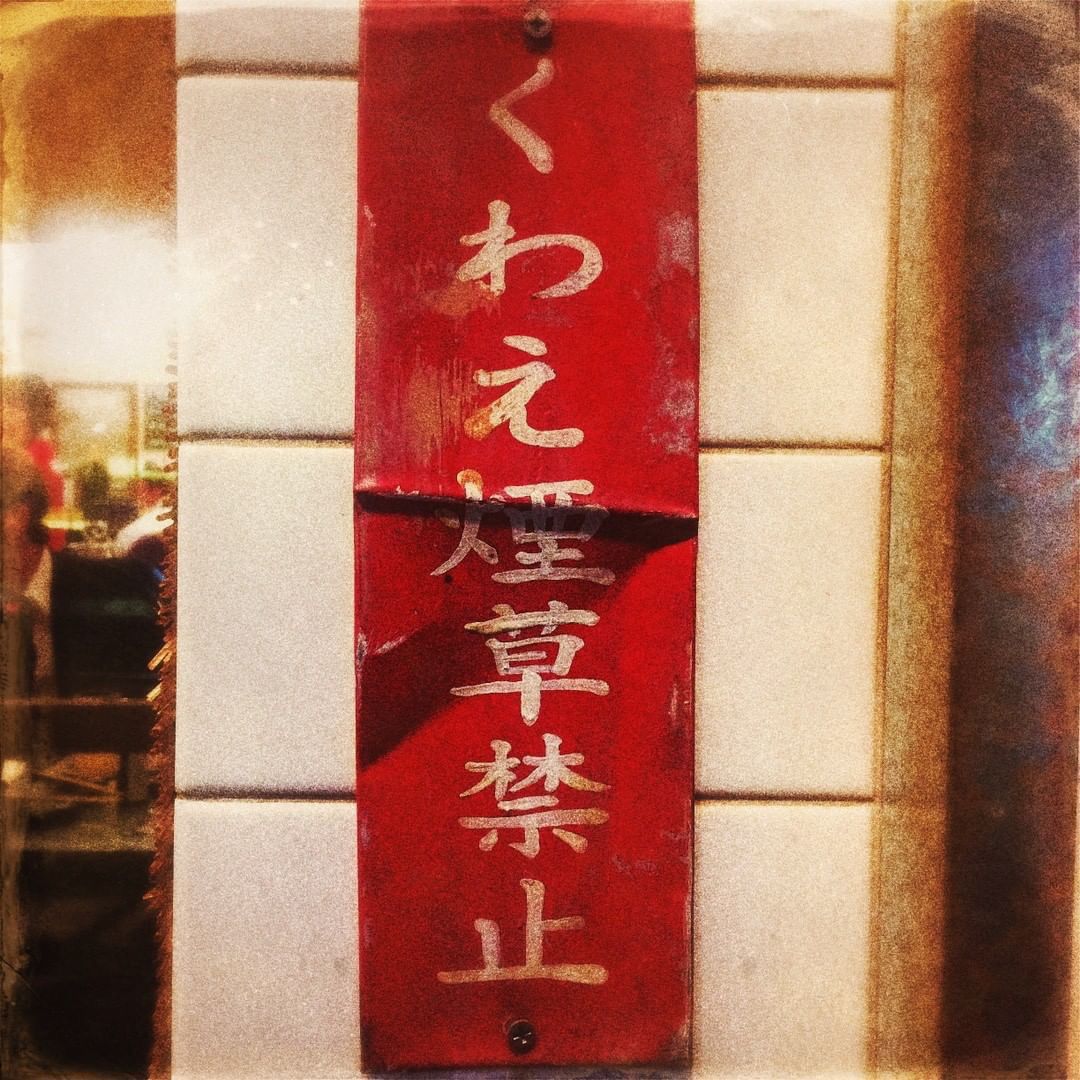 くわえ煙草禁止